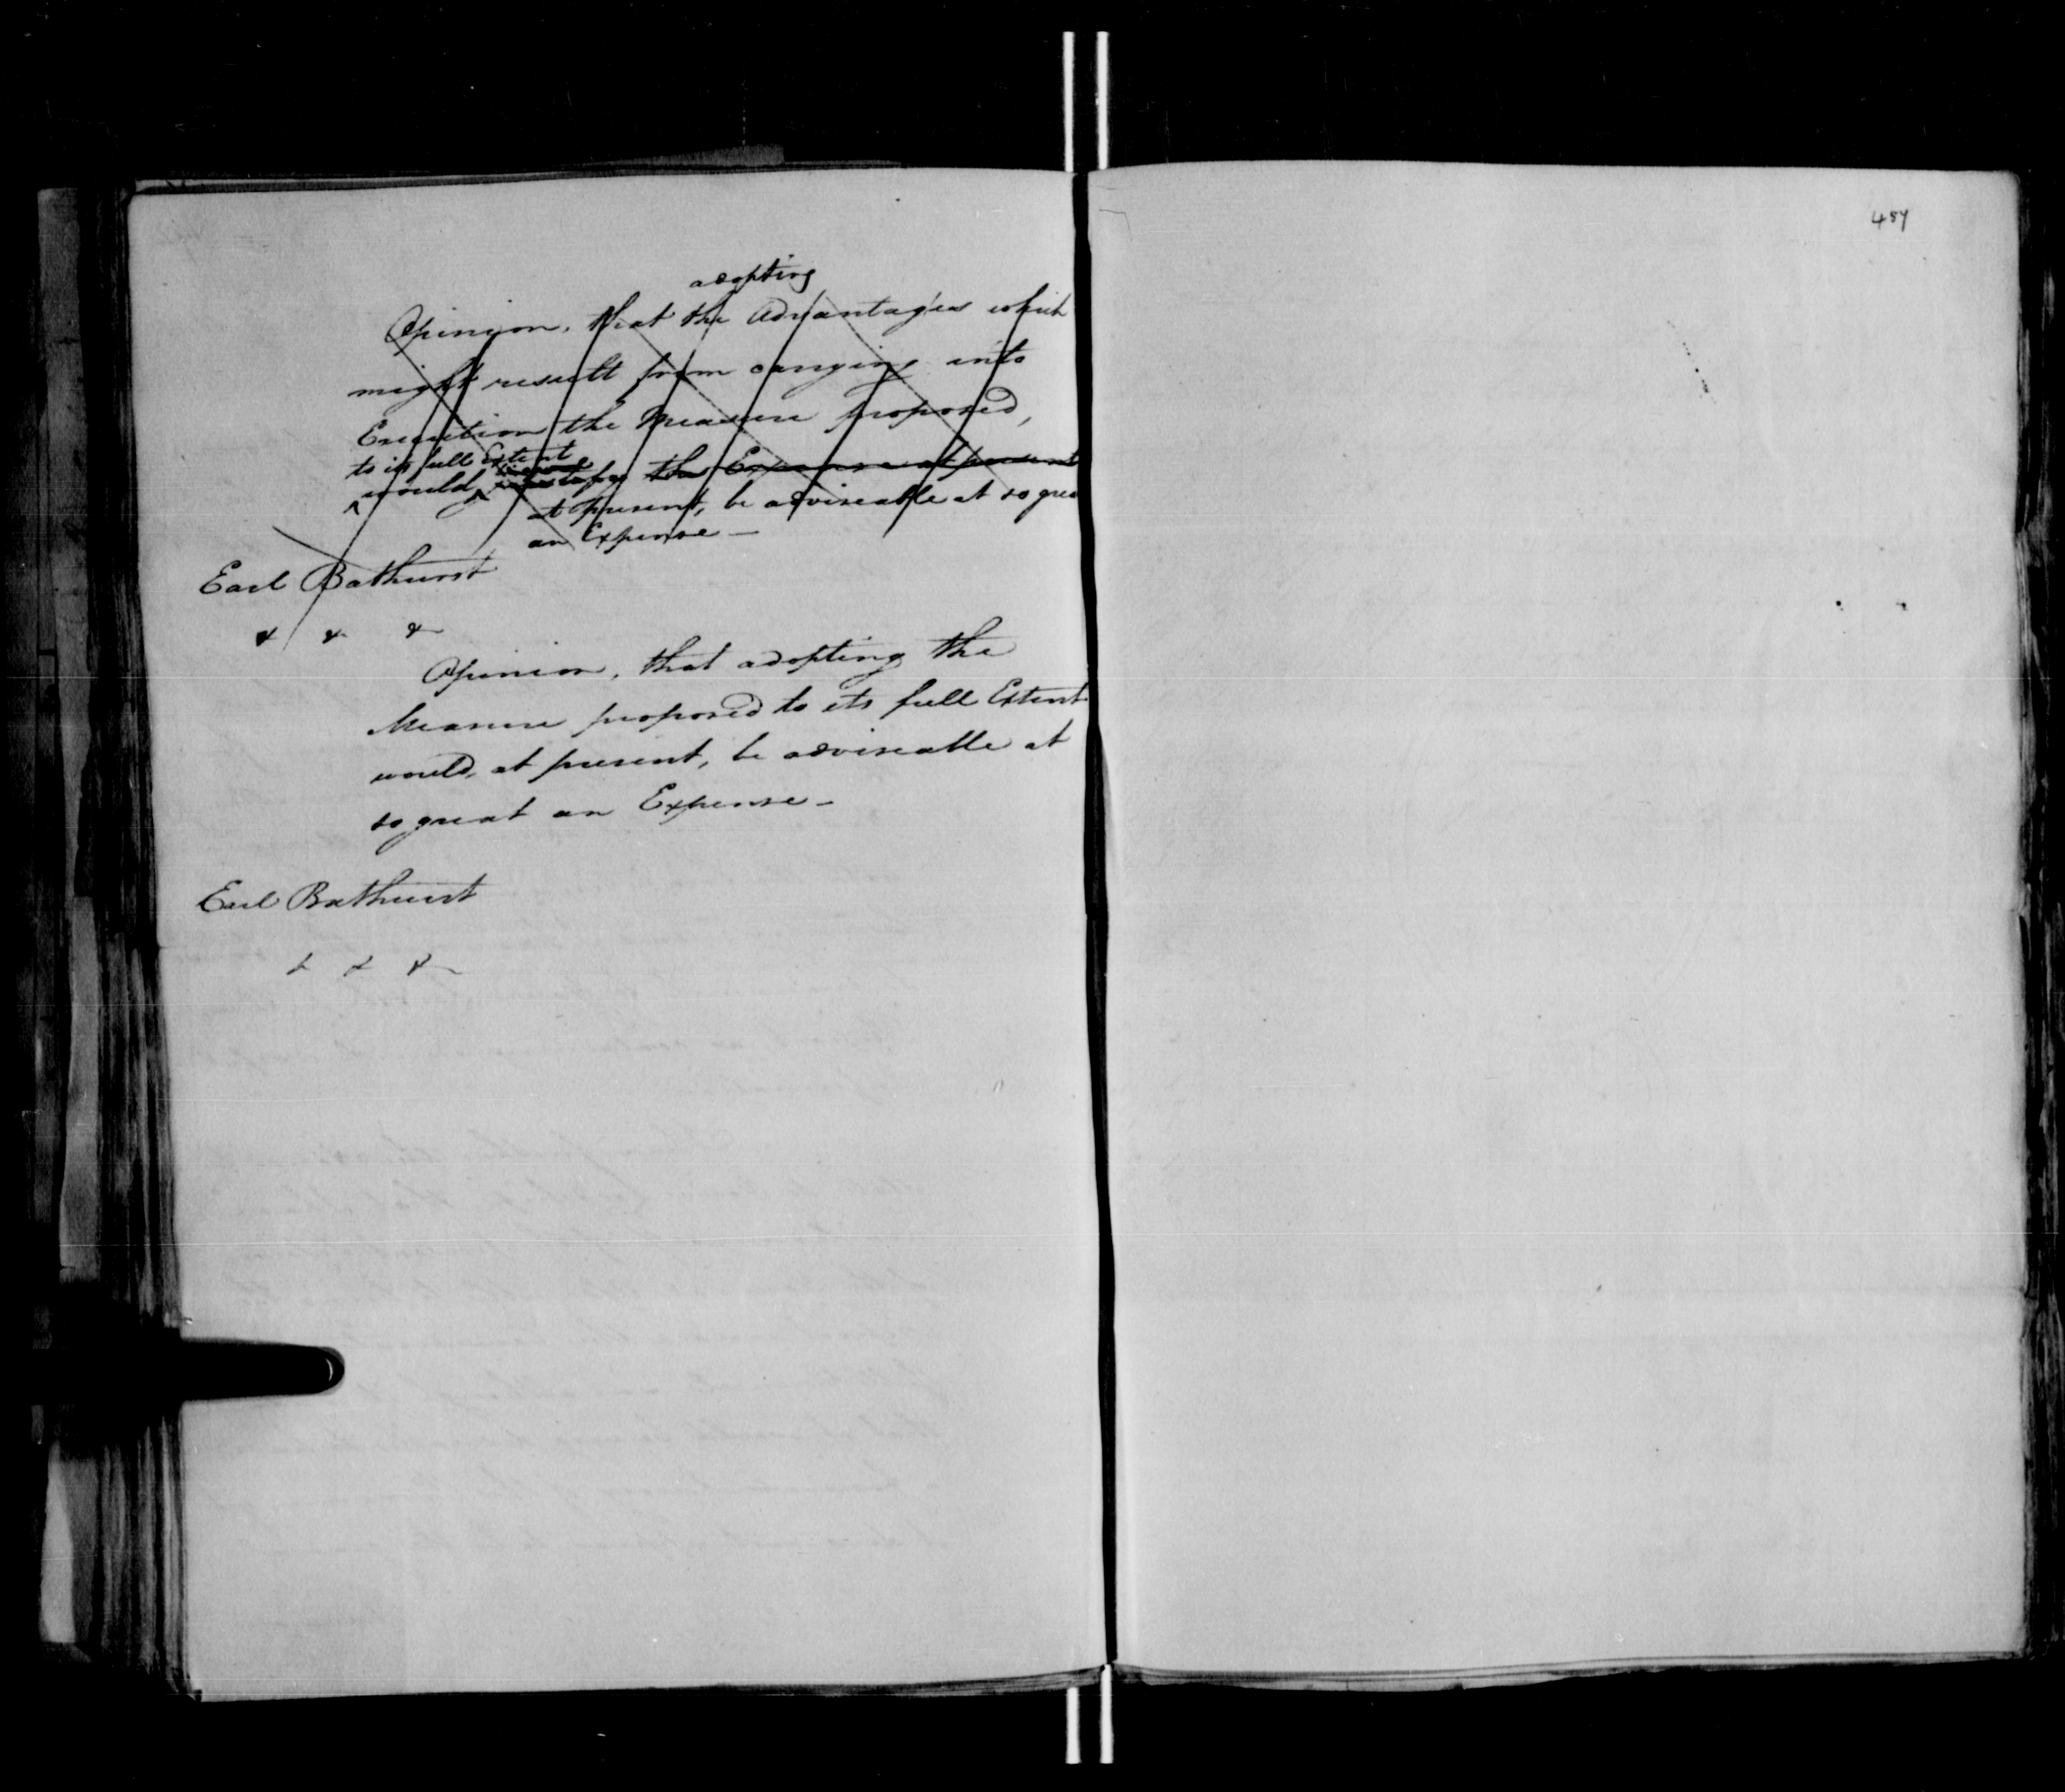 457
adopting
Opinion, that the Advantages which
might result from carrying into
Execution the Measure proposed,
to its full Extent
would, the Expense at present
at present, be adviseable at so great
an Expense —
Earl Bathurst
& & &
Opinion, that adopting the
Measure proposed to its full Extent
would, at present, be adviseable at
so great an Expense —
Earl Bathurst
& & &